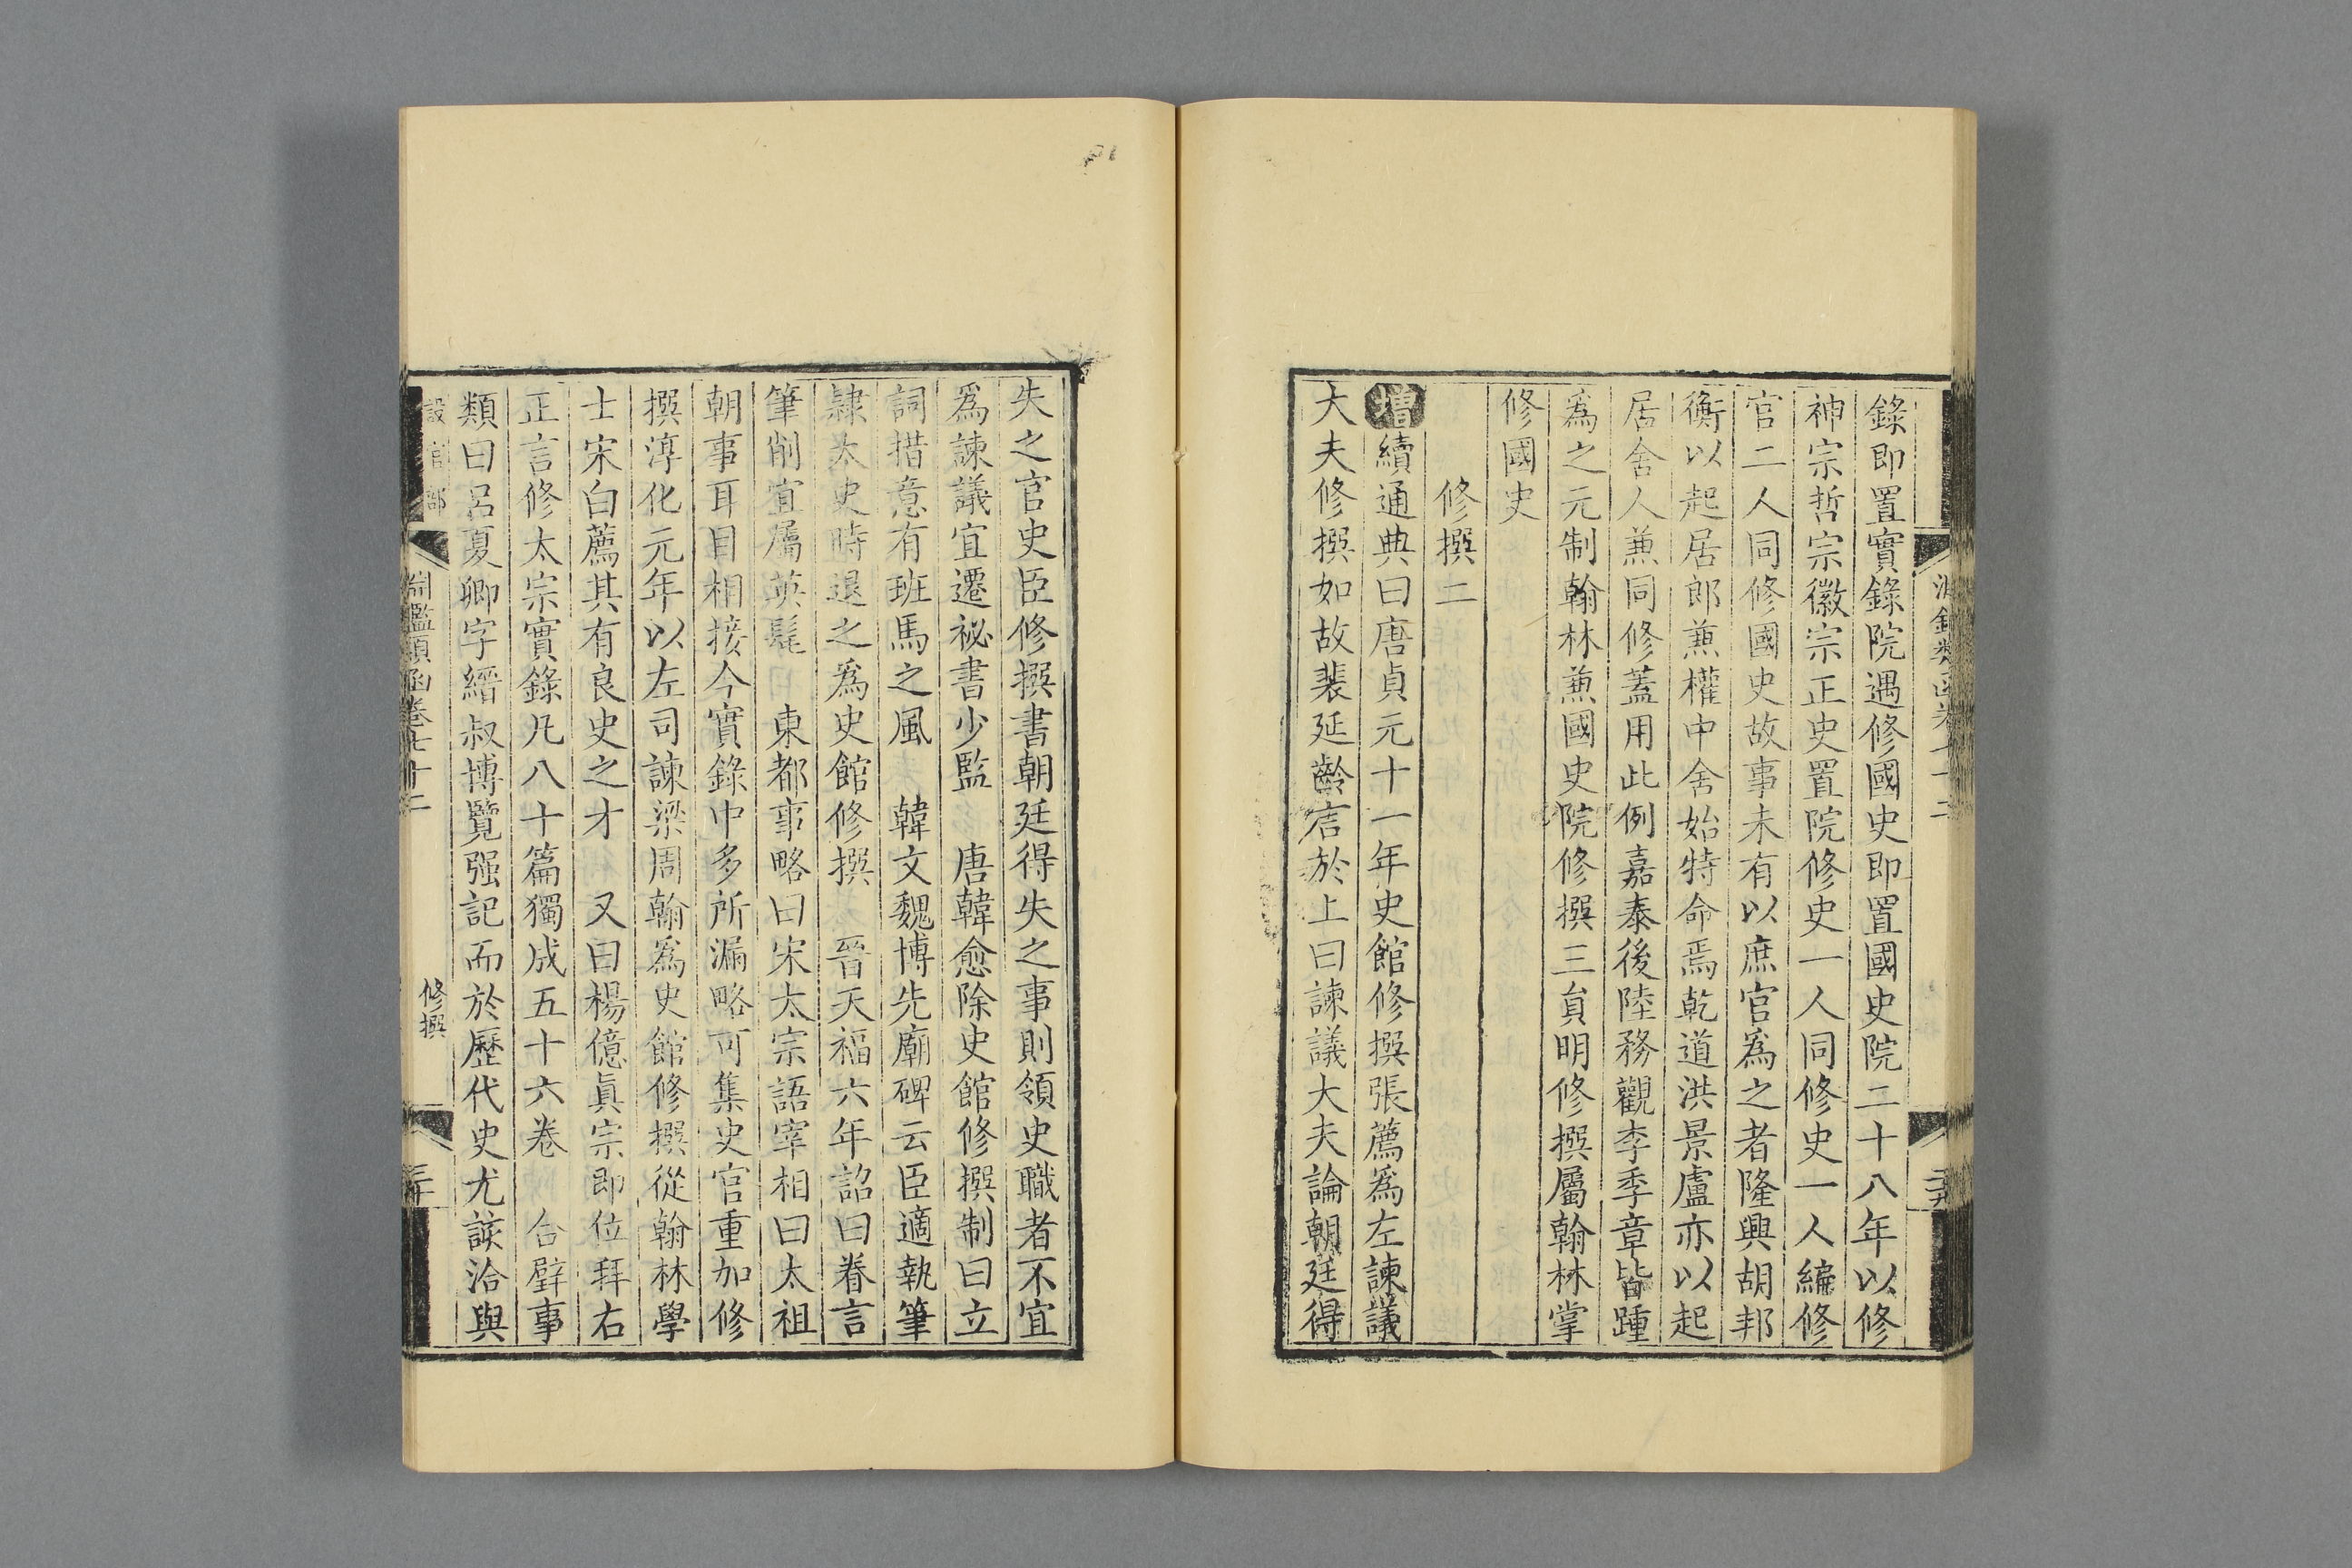 錄即置實錄院遇修國史即置國史院二十八年以修
神宗哲宗徽宗正史置院修史一人同修史一人編修
官二人同修國史故事未有以庶官爲之者隆興胡邦
衡以起居郎兼權中舍始特命焉乾道洪景盧亦以起
居舍人兼同修蓋用此例嘉泰後陸務觀李季章皆踵
爲之元制翰林兼國史院修撰三貟明修撰屬翰林掌
修國史
修撰二
增續通典曰唐貞元十一年史館修撰張薦爲左諫議
大夫修撰如故裴延齡言於上曰諫議大夫論朝廷得
失之官史臣修撰書朝廷得失之事則領史職者不宜
爲諫議宜遷祕書少監 唐韓愈除史館修撰制曰立
詞措意有班馬之風 韓文魏博先廟碑云臣適執筆
隸太史時退之爲史館修撰 晉天福六年詔曰眷言
筆削宜屬英髦 東都事略曰宋太宗語宰相曰太祖
朝事耳目相接今實錄中多所漏略可集史官重加修
撰淳化元年以左司諫梁周翰爲史館修撰從翰林學
士宋白薦其有良史之才 又曰楊億眞宗即位拜右
正言修太宗實錄凡八十篇獨成五十六卷 合璧事
類曰呂夏卿字縉叔博覽强記而於歷代史尤該洽與
設官部
淵鑑類函卷七十二
修撰
三十